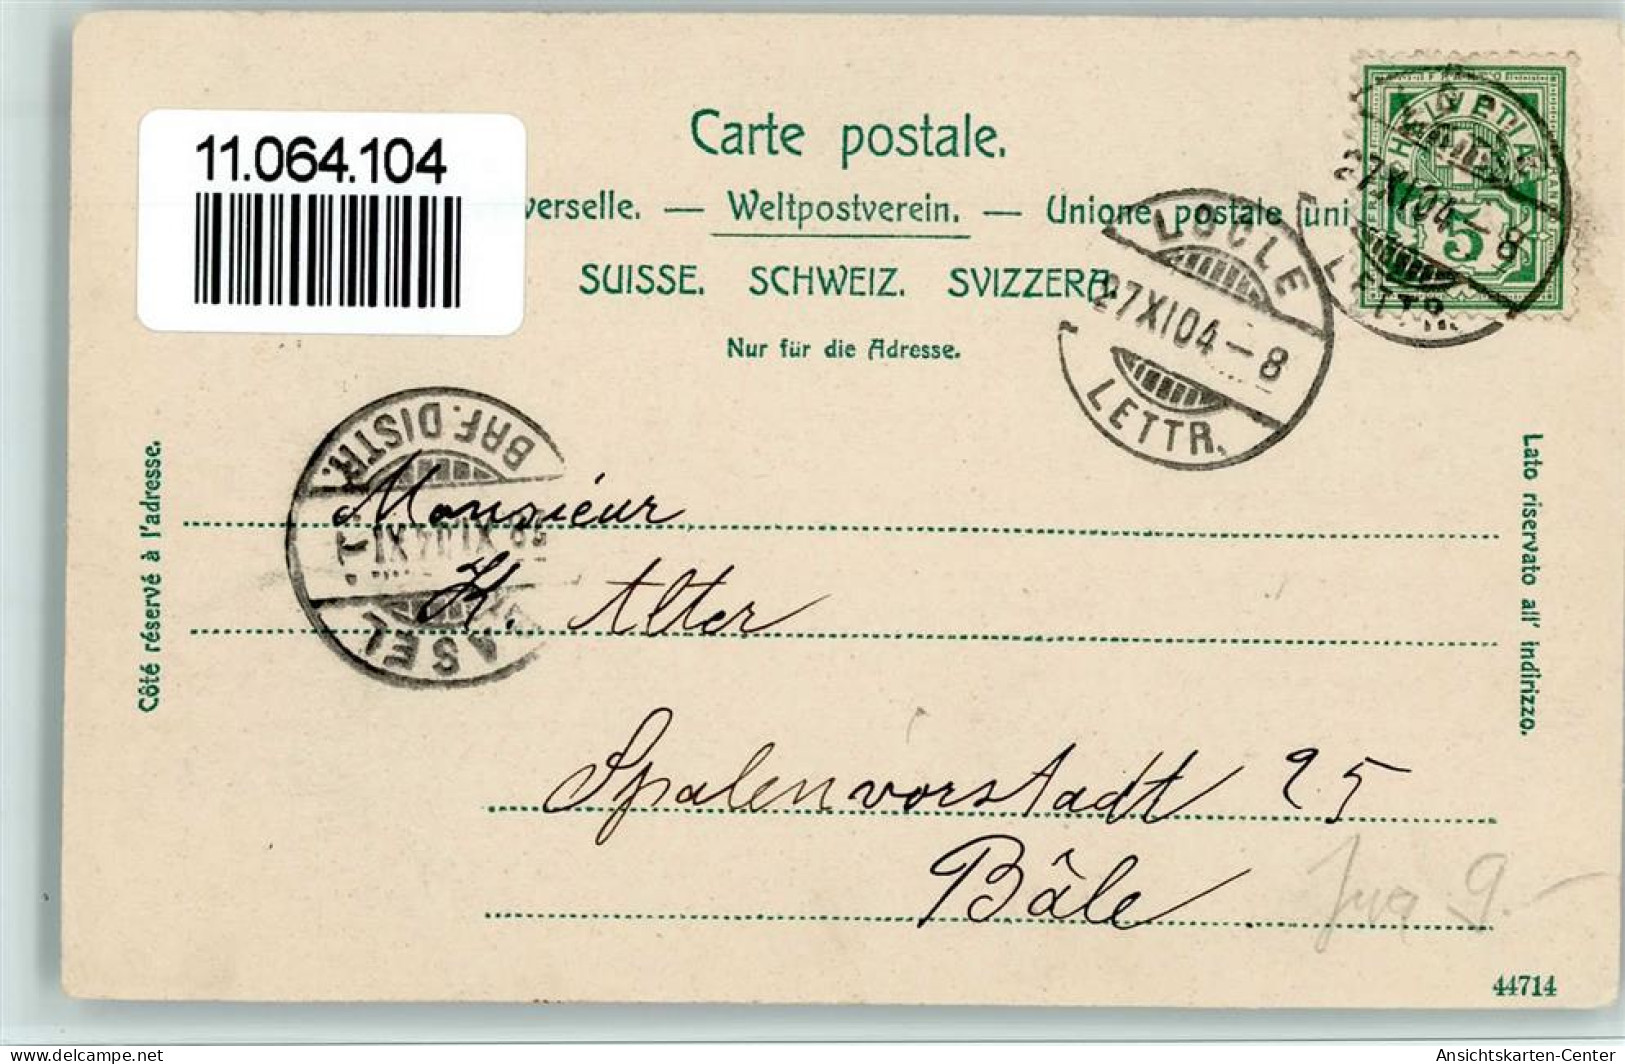 Carte postale.
11.064.104
verselle. — Weltpostverein. — Unione postale uni
SUISSE. SCHWEIZ. SVIZZERA.
Nur für die Adresse.
FRANCO
HELVETIA
5
27 XI 04 – 8
LETTR.
LOCLE
27 XI 04 – 8
LETTR.
BRF. DISTR.
XI.04.XI
BASEL
Côté réservé à l'adresse.
Lato riservato all' indirizzo.
Monsiéur
K. Alter
Spalenvorstadt 25
Bâle
9.-
44714
delcampe.net
Ansichtskarten-Center